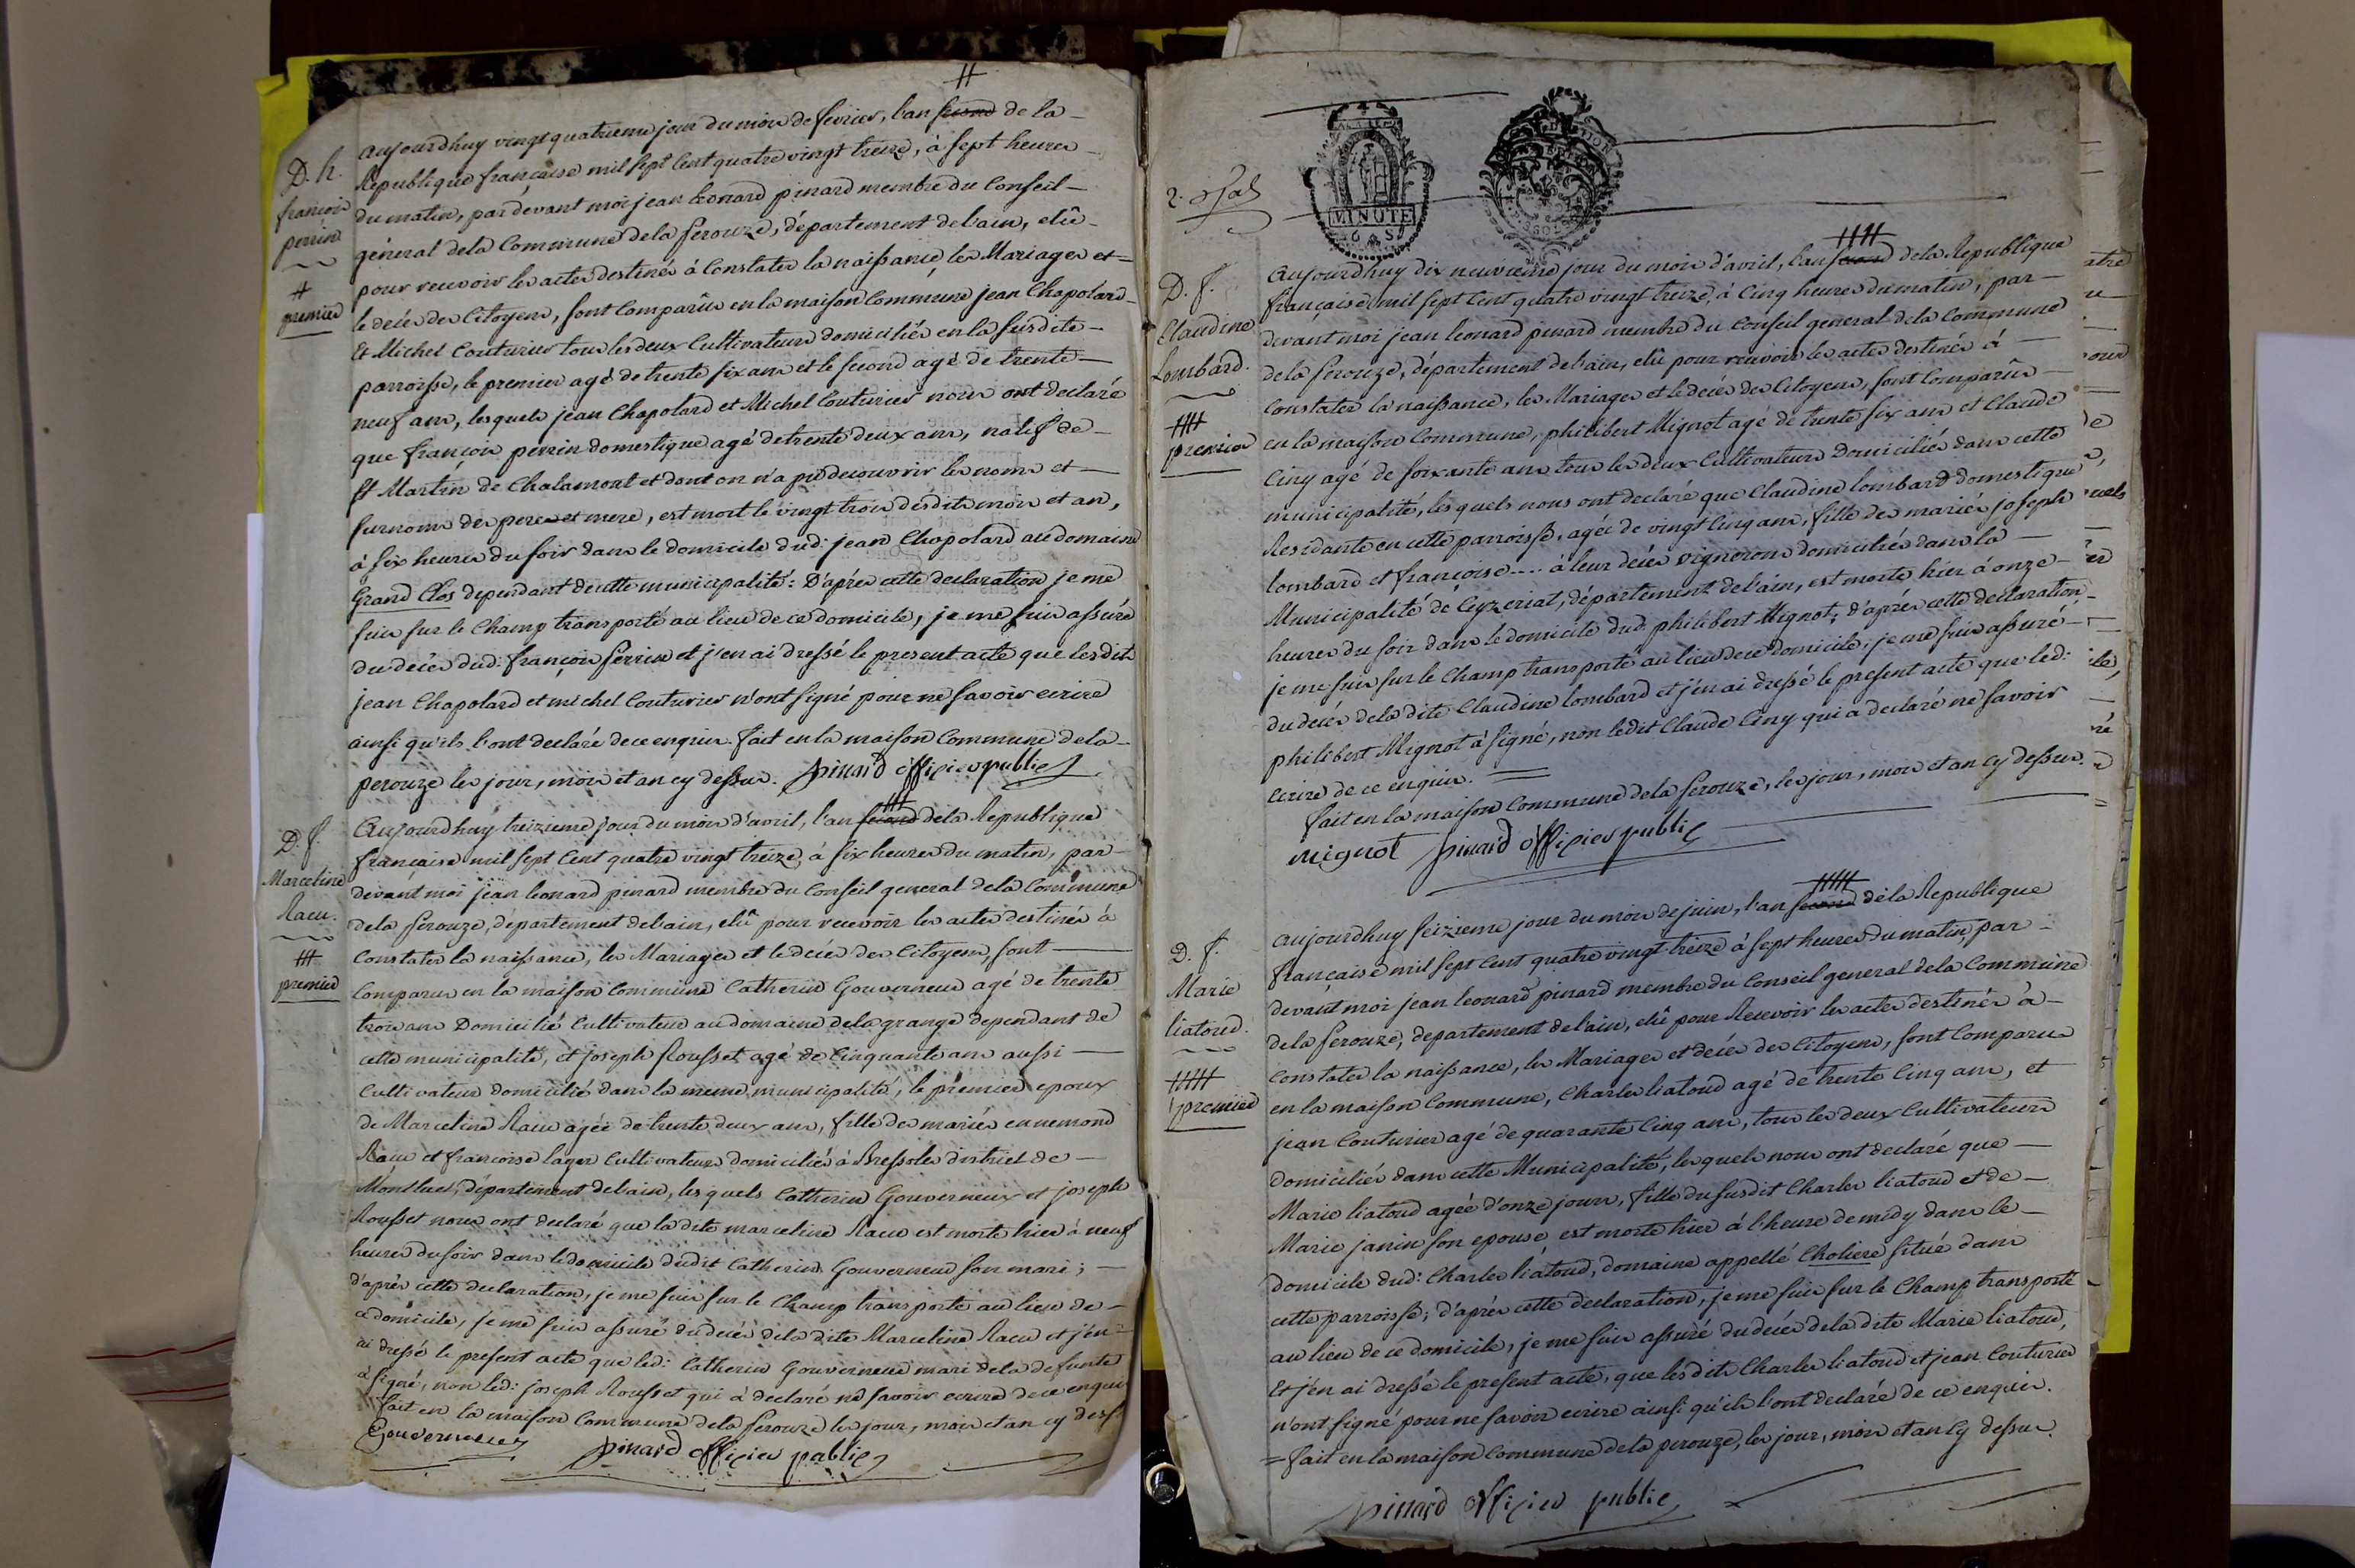 D. h.
françois
perrin
#
premier
#
aujourdhuy vingt quatrieme jour du mois de fevrier, l'an second de la
Republique française mil sept Cent quatre vingt treize, à sept heures
du matin, par devant moi jean leonard pinard membre du Conseil
géneral dela Commune dela perouze, département de l'ain, elû
pour recevoir les actes destinés à Constater la naissance, les Mariages et
le decès des Citoyens, sont Comparûs en la maison Commune jean Chapolard
Et Michel Couturier tous les deux Cultivateurs domiciliés en la susdite
parroisse, le premier agé de trente six ans et le second agé de trente
neuf ans, lesquels jean Chapolard et Michel Couturier nous ont declaré
que françois perrin domestique agé de trente deux ans, natif de
st Martin de Chalamont et dont on n'a pû decouvrir les noms et
surnoms des peres et mere, est mort le vingt trois desdits mois et an,
à six heures du soir dans le domicile dud: jean Chapolard au domaine
Grand Clos dependant decette municipalité: D'après cette declaration je me
suis sur le Champ transporté au lieu de ce domicile, je me suis assuré
du decès dud: françois perrin et j'en ai dressé le present acte que lesdits
jean Chapolard et michel Couturier n'ont signé pour ne savoir ecrire
ainsi qu'ils l'ont declaré de ce enquis. fait en la maison Commune de la
perouze les jour, mois et an cy dessus. pinard officier public
D. f.
Marceline
Racu.
###
premier
###
Aujourdhuy treizieme jour du mois d'avril, l'an second dela Republique
française mil sept Cent quatre vingt treize, à six heures du matin, par
devant moi jean leonard pinard membre du Conseil general dela Commune
dela perouze, département de l'ain, elû pour recevoir les actes destinés à
Constater la naissance, les Mariages et le decès des Citoyens, sont
Comparus en la maison Commune Catherin Gouverneur agé de trente
trois ans Domicilié Cultivateur au domaine dela grange dependant de
cette municipalité, et joseph Rousset agé de Cinquante ans aussi
Cultivateur domicilié dans la meme municipalité, le premier epoux
de Marceline Racu agée de trente deux ans, fille des mariés ennemond
Racu et françoise lager Cultivateurs domiciliés à Bressoles district de
Montluel, département de l'ain, les quels Catherin Gouverneur et joseph
Rousset nous ont declaré que la dite marceline Racu est morte hier à neuf
heures du soir dans le domicile dudit Catherin Gouverneur son mari;
d'après cette declaration, je me suis sur le Champ transporté au lieu de
ce domicile, je me suis assuré du decès dela dite Marceline Racu et j'en
ai dressé le present acte que led: Catherin Gouverneur mari dela defunte
à signé, non led: joseph Rousset qui à declaré ne savoir ecrire de ce enquis
fait en la maison Commune dela perouze les jour, mois et an cy dess.
Gouverneur
pinard officier public
MINUTE
D. f.
Claudine
Lombard.
####
premier
####
Aujourdhuy dix neuvieme jour du mois d'avril, l'an second dela Republique
française mil sept Cent quatre vingt treize, à Cinq heures du matin, par
devant moi jean leonard pinard membre du Conseil general dela Commune
dela perouze, département de l'ain, elû pour recevoir les actes destinés à
Constater la naissance, les Mariages et le decès des Citoyens, sont Comparûs
en la maison Commune, philibert Mignot agé de trente six ans et Claude
Ciny agé de soixante ans tous les deux Cultivateurs Domiciliés dans cette
municipalité, les quels nous ont declaré que Claudine lombard domestique
Residante en cette parroisse, agée de vingt Cinq ans, fille des mariés joseph
lombard et françoise .... à leur decès vignerons domiciliés dans la
Municipalité de Ceyzeriat, département de l'ain, est morte hier à onze
heures du soir dans le domicile dud. philibert Mignot; d'après cette declaration
je me suis sur le Champ transporté au lieu dece domicile, je me suis assuré
du decès dela dite Claudine lombard et j'en ai dressé le present acte que led:
philibert Mignot à signé, non ledit Claude Ciny qui a declaré ne savoir
ecrire de ce enquis.
fait en la maison Commune dela perouze, les jour, mois et an cy dessus.
mignot pinard officier public
D. f.
Marie
liatoud.
#####
premier
#####
aujourdhuy seizieme jour du mois de juin, l'an second dela Republique
française mil sept Cent quatre vingt treize à sept heures du matin, par
devant moi jean leonard pinard membre du Conseil general dela Commune
dela perouze, département de l'ain, elû pour Recevoir les actes destinés à
Constater la naissance, les Mariages et decès des Citoyens, sont Comparu
en la maison Commune, Charles liatoud agé de trente Cinq ans, et
jean Couturier agé de quarante Cinq ans, tous les deux Cultivateurs
domiciliés dans cette Municipalité, lesquels nous ont declaré que
Marie liatoud agée d'onze jours, fille du susdit Charles liatoud et de
Marie janin son epouse est morte hier à l'heure de midy dans le
domicile dud: Charles liatoud, domaine appellé Choliere situé dans
cette parroisse; d'après cette declaration, je me suis sur le Champ transporté
au lieu de ce domicile, je me suis assuré du decès dela dite Marie liatoud,
Et j'en ai dressé le present acte, que lesdits Charles liatoud et jean Couturier
n'ont signé pour ne savoir ecrire ainsi qu'ils l'ont declaré de ce enquis.
= fait en la maison Commune dela perouze, les jour, mois et an Cy dessus.
pinard officier public